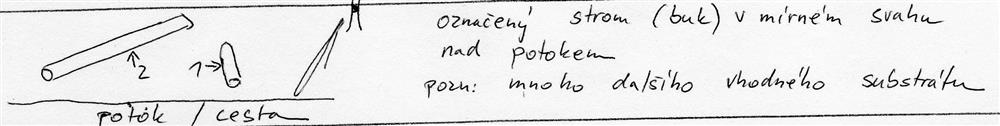 označený strom (buk) v mírném svahu
nad potokem
pozn: mnoho dalšího vhodného substrátu
1
2
potok / cesta